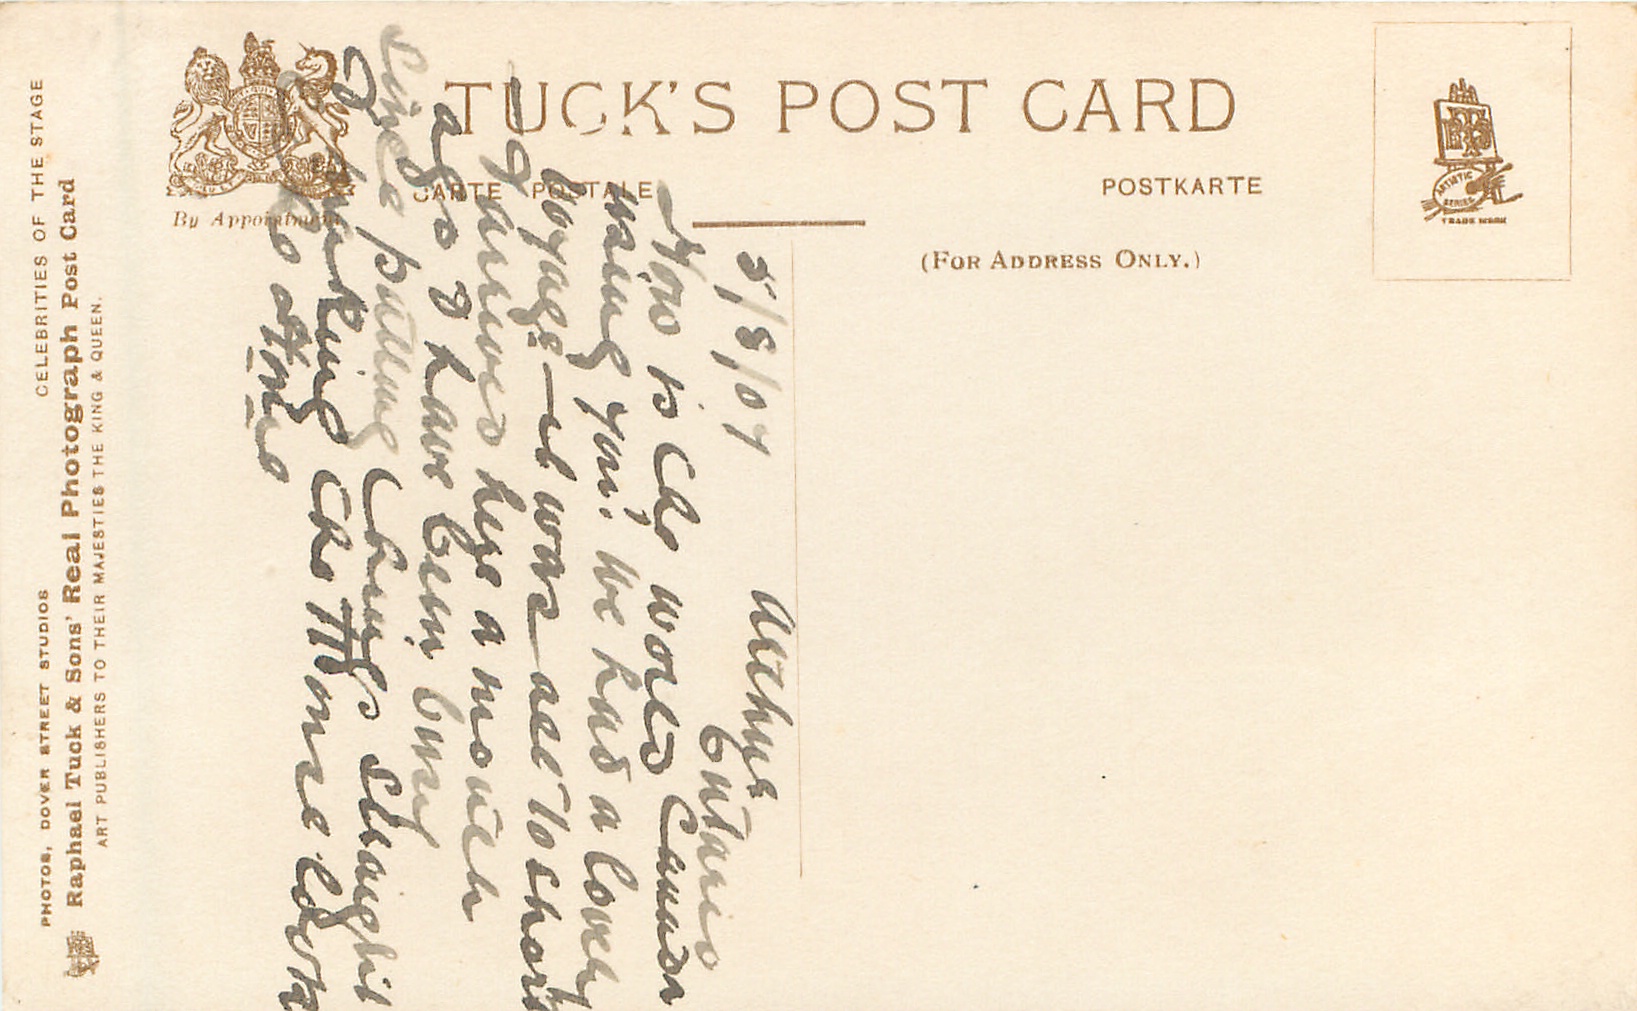 TUCK'S POST CARD
CARTE POSTALE
POSTKARTE
(FOR ADDRESS ONLY.)
By Appointment
ARTISTIC SERIES
TRADE MARK
CELEBRITIES OF THE STAGE
PHOTOS, DOVER STREET STUDIOS
Raphael Tuck & Sons' Real Photograph Post Card
ART PUBLISHERS TO THEIR MAJESTIES THE KING & QUEEN.
Ontario
5/8/07
How is the world
using you! we had a lovely
voyage - it was all to short
I arrived here a month
ago & have been busy
since putting things straight
& making the Home look